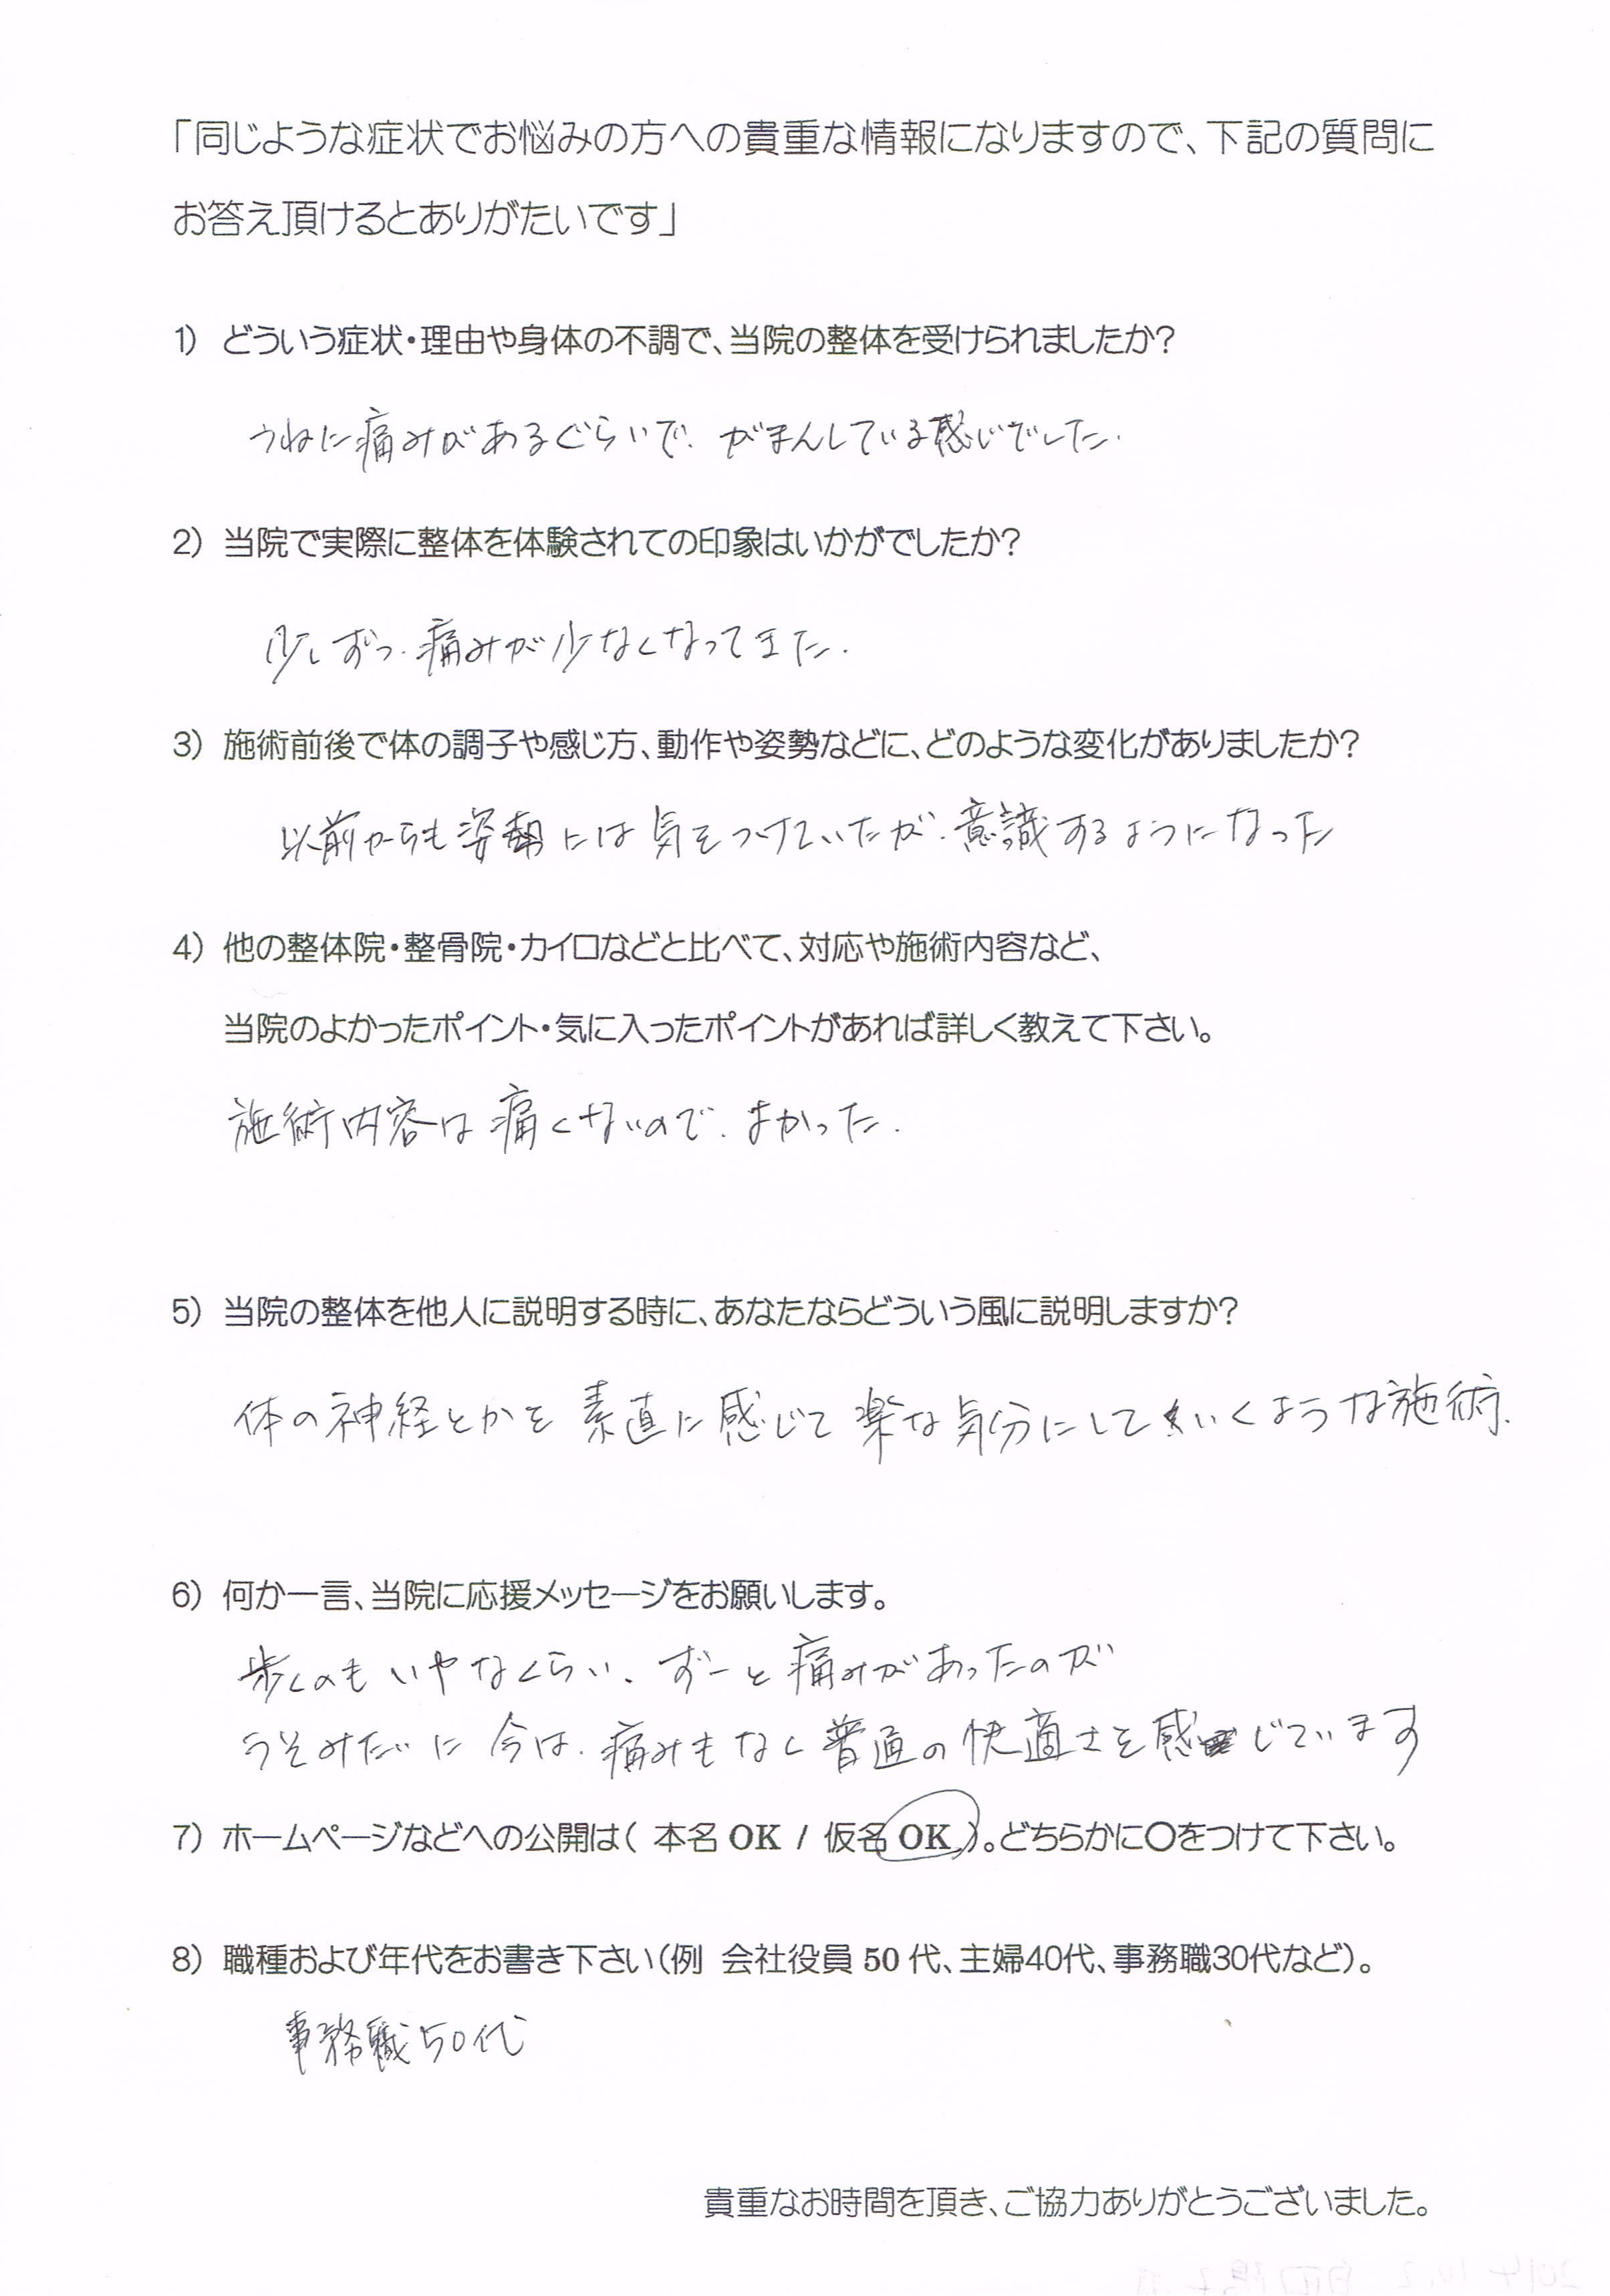 「同じような症状でお悩みの方への貴重な情報になりますので、下記の質問に
お答え頂けるとありがたいです」
1) どういう症状・理由や身体の不調で、当院の整体を受けられましたか?
うねに痛みがあるぐらいで、がまんしている感じでした.
2) 当院で実際に整体を体験されての印象はいかがでしたか?
少しずつ、痛みが少なくなってきた.
3) 施術前後で体の調子や感じ方、動作や姿勢などに、どのような変化がありましたか?
以前からも姿勢には気をつけていたが、意識するようになった
4) 他の整体院・整骨院・カイロなどと比べて、対応や施術内容など、
当院のよかったポイント・気に入ったポイントがあれば詳しく教えて下さい。
施術内容は痛くないので、よかった.
5) 当院の整体を他人に説明する時に、あなたならどういう風に説明しますか?
体の神経とかを素直に感じて楽な気分にしていくような施術.
6) 何か一言、当院に応援メッセージをお願いします。
歩くのもいやなくらい、ずーと痛みがあったのが
うそみたいに今は、痛みもなく普通の快適さを感じています
7) ホームページなどへの公開は( 本名 OK / 仮名 OK )。どちらかに〇をつけて下さい。
8) 職種および年代をお書き下さい(例 会社役員 50 代、主婦40代、事務職30代など)。
事務職50代
貴重なお時間を頂き、ご協力ありがとうございました。